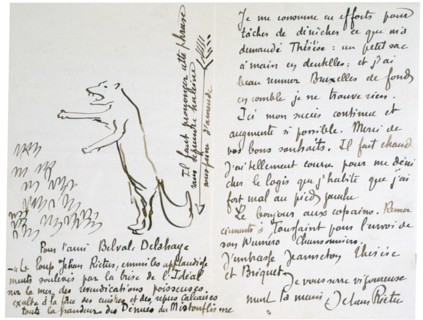 Il faut prononcer cette phrase
sans reprendre haleine
sous peine d'amende
Pour l'ami Belval-Delahaye
Le Loup Jehan Rictus, emmi les applaudisse-
ments soulevés par la brise de l'Idéal
sur la mer des éructations poisseuses,
exalta à la face des cuistres et des repus calicaux
toute la grandeur des Dèmes du Mistonflisme
Je me consomme en efforts pour
tâcher de dénicher ce que m'a
demandé Thérèse : un petit sac
à main en dentelles ; et j'ai
beau remuer Bruxelles de fond
en comble je ne trouve rien.
Ici mon succès continue et
augmente si possible. Merci de
vos bons souhaits. Il fait chaud
J'ai tellement couru pour me déni
cher le logis que j'habite que j'ai
fort mal au pied
Le bonjour aux copains. Remer
ciements à Toussaint pour l'envoi de
son Numéro Chansonniers.
J'embrasse Jeannechon Thérèse
et Briquet
Je vous serre vigoureuse
ment la main, Jehan Rictus